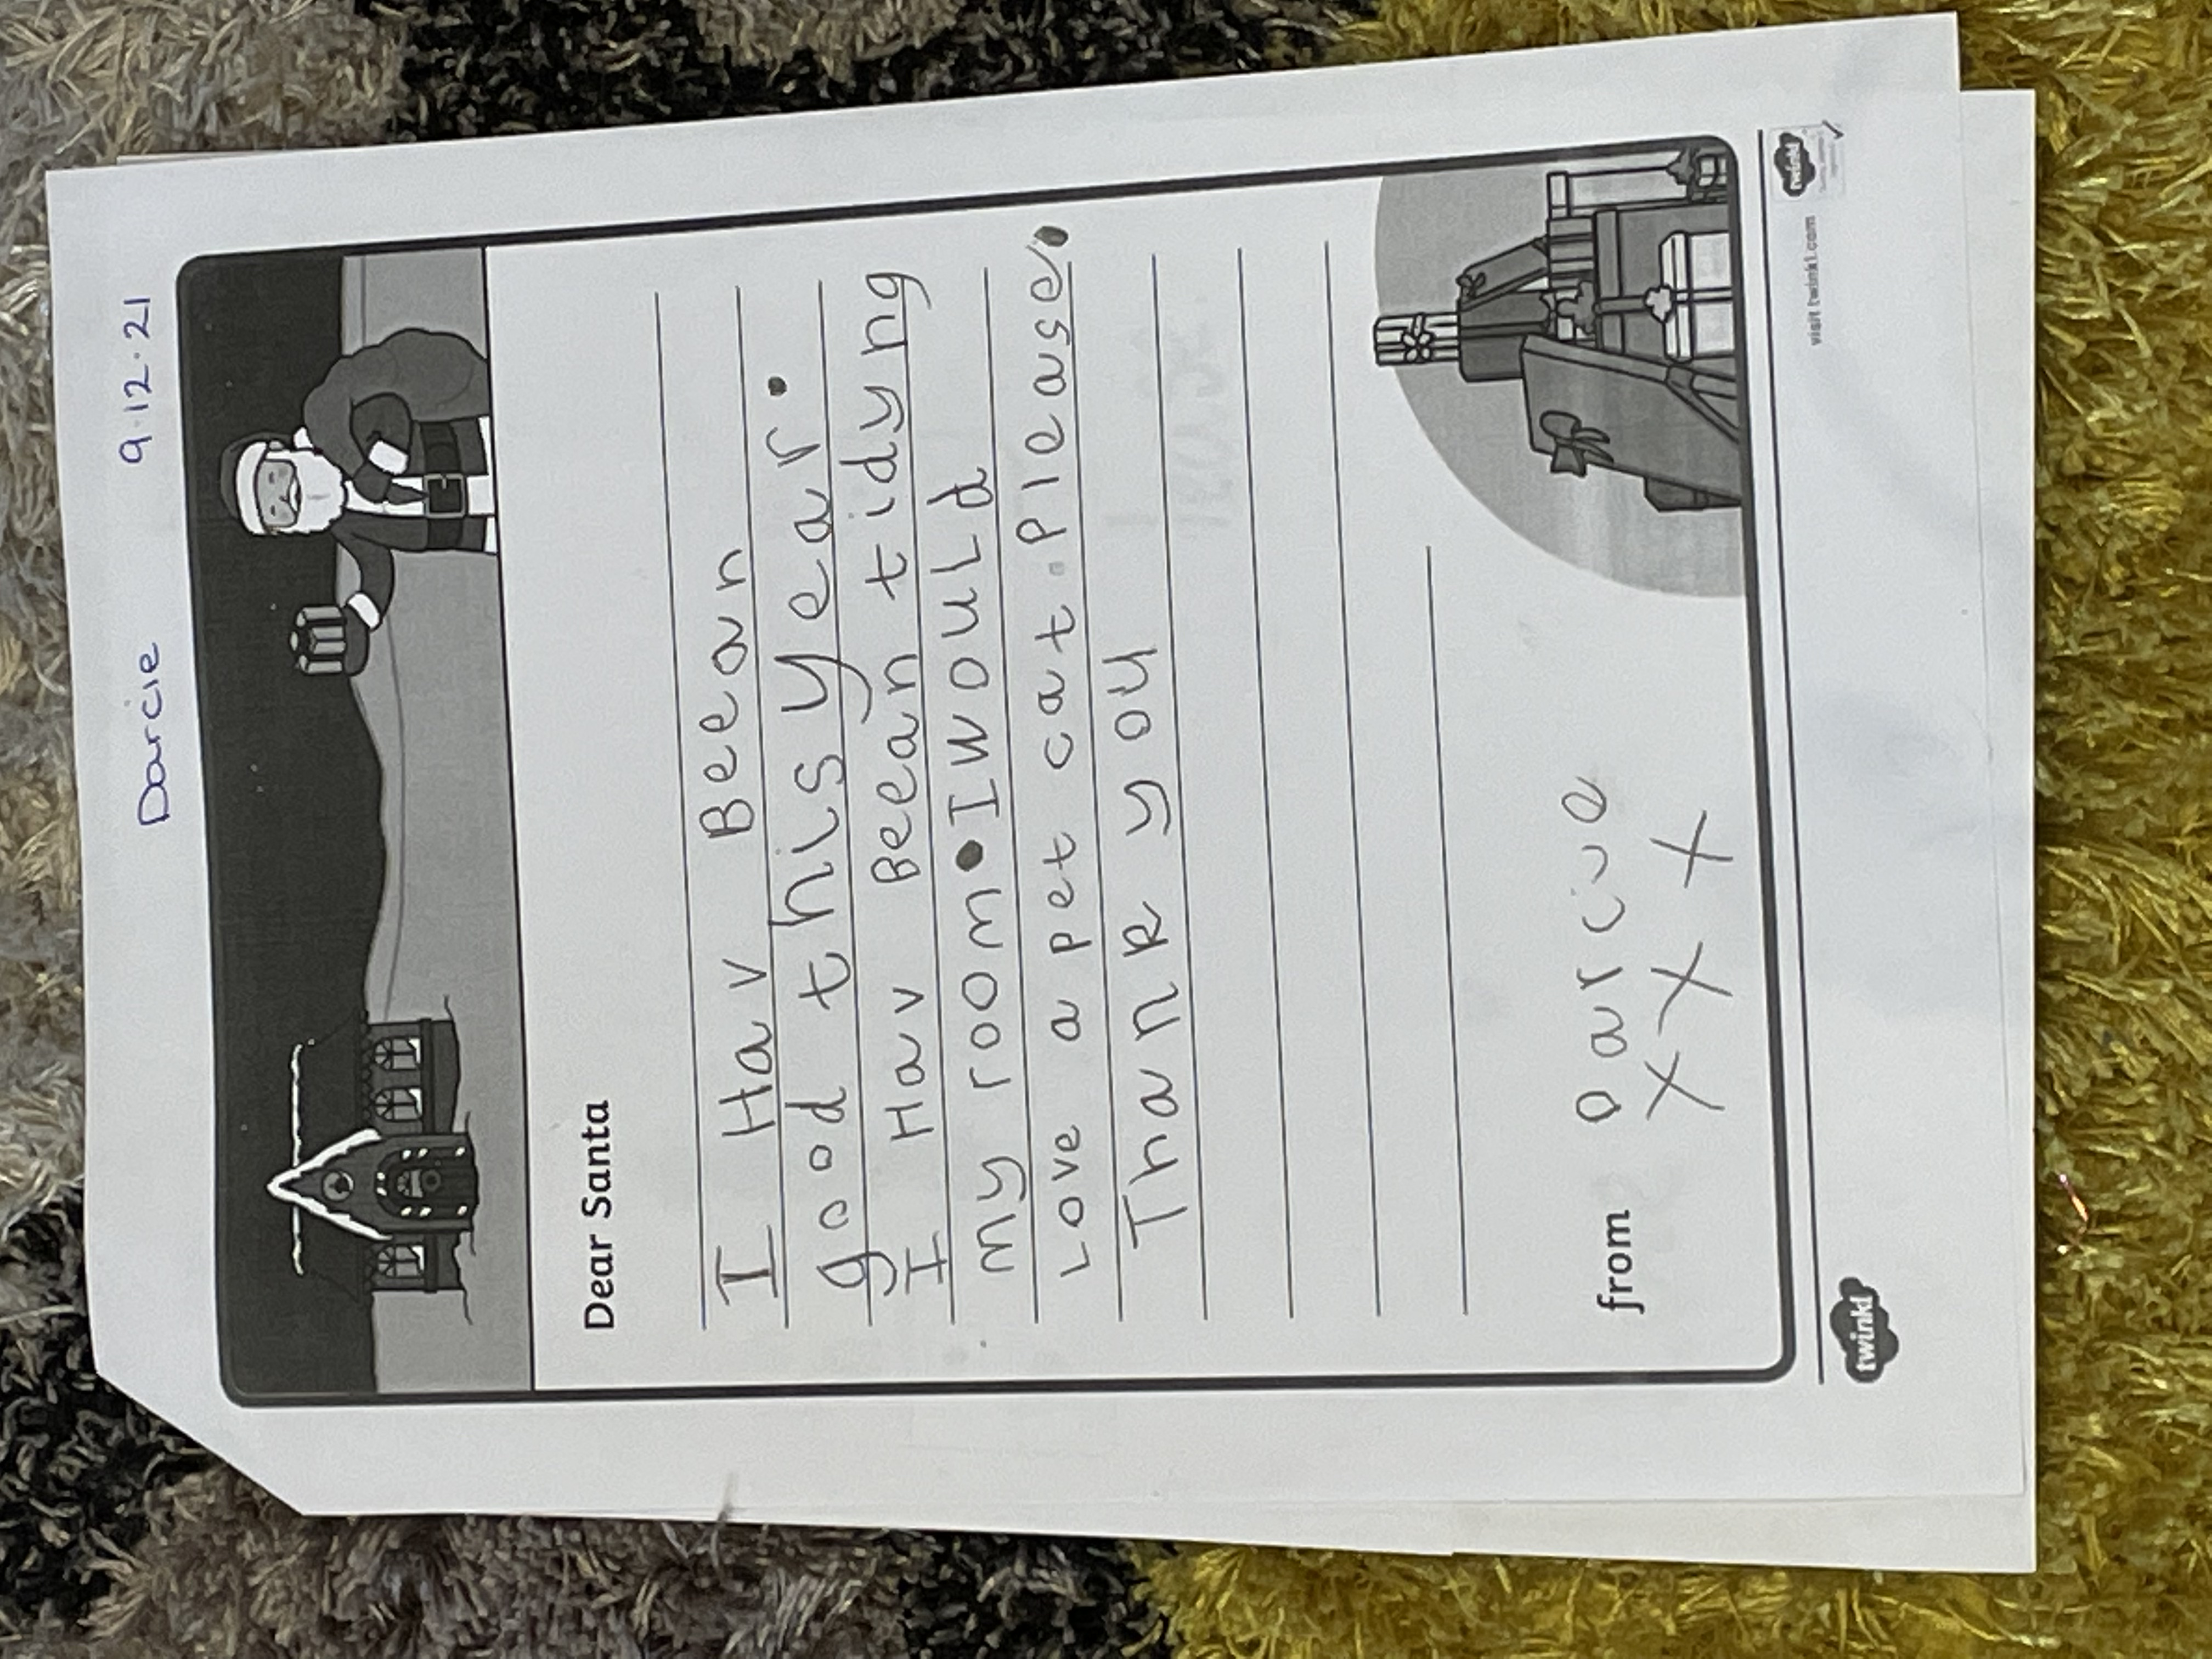 Darcie 9.12.21
Dear Santa
I Hav Beean
good this year.
I Hav Beean tidyng
my room. I would
Love a pet cat. Please.
Thank you
from Darcie
x x x
twinkl
visit twinkl.com
twinkl